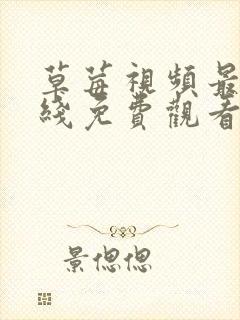 草莓視頻最
綫免費觀看
景偲偲